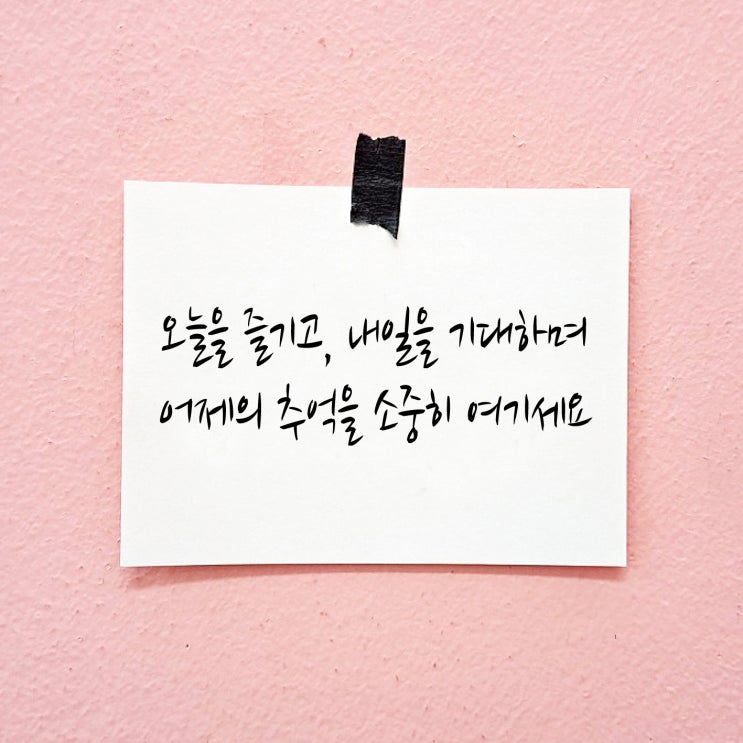 오늘을 즐기고, 내일을 기대하며
어제의 추억을 소중히 여기세요